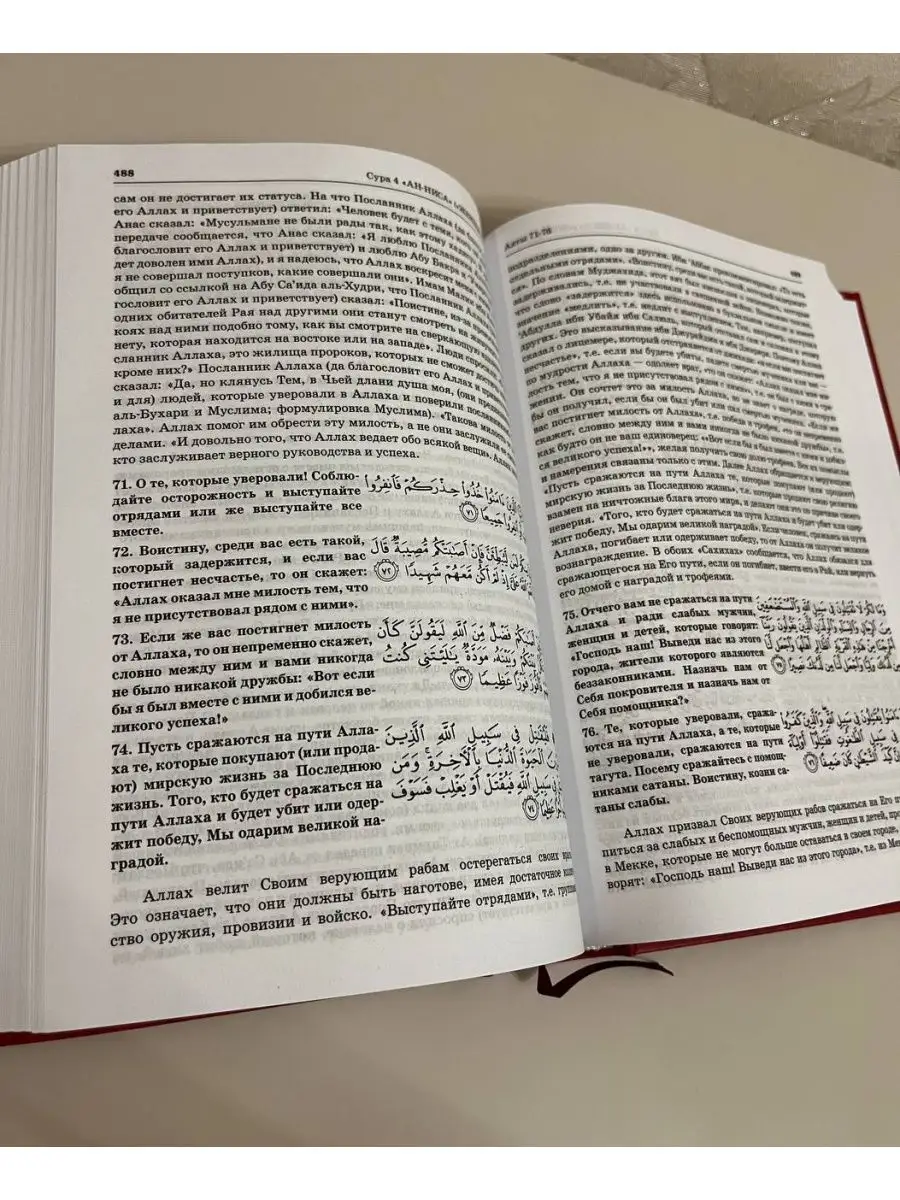 488
Сура 4 «АН-НИСА»
сам он не достигает их статуса. На что Посланник Аллаха (да
его Аллах и приветствует) ответил: «Человек будет с теми, кого
Анас сказал: «Мусульмане не были рады так, как этому
передаче сообщается, что Анас сказал: «Я люблю Посланника
благословит его Аллах и приветствует) и люблю Абу Бакра и
дет доволен ими Аллах), и я надеюсь, что Аллах воскресит меня
я не совершал поступков, какие совершали они». Имам Малик
общил со ссылкой на Абу Са'ида аль-Худри, что Посланник Аллаха
гословит его Аллах и приветствует) сказал: «Поистине, из-за
одних обитателей Рая над другими они станут смотреть на
коях над ними подобно тому, как вы смотрите на сверкающую
нету, которая находится на востоке или на западе». Люди
сланник Аллаха, это жилища пророков, которых не сможет
кроме них?» Посланник Аллаха (да благословит его Аллах и
сказал: «Да, но клянусь Тем, в Чьей длани душа моя, (они
и для) людей, которые уверовали в Аллаха и поверили
аль-Бухари и Муслима; формулировка Муслима). «Такова милость
лаха». Аллах помог им обрести эту милость, а не они заслужили
делами. «И довольно того, что Аллах ведает обо всякой вещи».
кто заслуживает верного руководства и успеха.
71. О те, которые уверовали! Соблю-
дайте осторожность и выступайте
отрядами или же выступайте все
вместе.
ءَامَنُوا۟ خُذُوا۟ حِذْرَكُمْ فَٱنفِرُوا۟
جَمِيعًا ٧١
72. Воистину, среди вас есть такой,
который задержится, и если вас
постигнет несчастье, то он скажет:
«Аллах оказал мне милость тем, что
я не присутствовал рядом с ними».
لَّيُبَطِّئَنَّ فَإِنْ أَصَٰبَتْكُم مُّصِيبَةٌ قَالَ
عَلَىَّ إِذْ لَمْ أَكُن مَّعَهُمْ شَهِيدًا ٧٢
73. Если же вас постигнет милость
от Аллаха, то он непременно скажет,
словно между ним и вами никогда
не было никакой дружбы: «Вот если
бы я был вместе с ними и добился ве-
ликого успеха!»
فَضْلٌ مِّنَ ٱللَّهِ لَيَقُولَنَّ كَأَن
وَبَيْنَهُۥ مَوَدَّةٌ يَٰلَيْتَنِى كُنتُ
فَوْزًا عَظِيمًا ٧٣
74. Пусть сражаются на пути Алла-
ха те, которые покупают (или прода-
ют) мирскую жизнь за Последнюю
жизнь. Того, кто будет сражаться на
пути Аллаха и будет убит или одер-
жит победу, Мы одарим великой на-
градой.
فِى سَبِيلِ ٱللَّهِ ٱلَّذِينَ
ٱلْحَيَوٰةَ ٱلدُّنْيَا بِٱلْءَاخِرَةِ وَمَن
فِى سَبِيلِ ٱللَّهِ فَيُقْتَلْ أَوْ يَغْلِبْ فَسَوْفَ
Аллах велит Своим верующим рабам остерегаться своих
Это означает, что они должны быть наготове, имея достаточное
ство оружия, провизии и войско. «Выступайте отрядами», т.е.
Аяты 71-76
489
подразделениями, одно за другим. Ибн 'Аббас
отдельными отрядами». «Воистину, среди вас есть такой, который
По словам Муджахида, этот аят
задерживались, т.е. не участвовали в
что слово «задержится» здесь
значение «медлить», т.е. медлит с выступлением.
'Абдулла ибн Убайй ибн Салюль, который
других. Это высказывание ибн Джурейджа и ибн Джарира.
сказал о лицемере, который отстраняется от
несчастье», т.е. если вы будете убиты,
по мудрости Аллаха — одолеет враг, «то он скажет: «Аллах оказал мне
лость тем, что я не присутствовал рядом с ними»,
жении. Он сочтет это за милость Аллаха,
бы он получил, если бы он был убит или
вас постигнет милость от Аллаха», т.е. победа и трофеи, «то он непременно
скажет, словно между ним и вами никогда не было никакой дружбы»,
как будто он не ваш единоверец: «Вот если бы я был вместе с ними и добил-
ся великого успеха!»», желая получить свою долю трофеев.
и намерения связаны только с этим. Далее Аллах
«Пусть сражаются на пути Аллаха те, которые покупают (или продают)
мирскую жизнь за Последнюю жизнь», т.е. которые продают свою религию
взамен на ничтожные блага этого мира, и делают они это
неверия. «Того, кто будет сражаться на пути Аллаха и будет убит или одер-
жит победу, Мы одарим великой наградой». Если человек, сражаясь на пути
Аллаха, погибает или одерживает победу, то от Аллаха он получит великое
вознаграждение. В обоих «Сахихах» сообщается, что Аллах обязался для
сражающегося на Его пути, если он погибнет, ввести его в Рай, или вернуть
его домой с наградой и трофеями.
75. Отчего вам не сражаться на пути
Аллаха и ради слабых мужчин,
женщин и детей, которые говорят:
«Господь наш! Выведи нас из этого
города, жители которого являются
беззаконниками. Назначь нам от
Себя покровителя и назначь нам от
Себя помощника?»
وَمَا لَكُمْ لَا تُقَٰتِلُونَ فِى سَبِيلِ ٱللَّهِ وَٱلْمُسْتَضْعَفِينَ
مِنَ ٱلرِّجَالِ وَٱلنِّسَآءِ وَٱلْوِلْدَٰنِ ٱلَّذِينَ يَقُولُونَ رَبَّنَآ
أَخْرِجْنَا مِنْ هَٰذِهِ ٱلْقَرْيَةِ ٱلظَّالِمِ أَهْلُهَا وَٱجْعَل لَّنَا
مِن لَّدُنكَ وَلِيًّا وَٱجْعَل لَّنَا مِن لَّدُنكَ نَصِيرًا ٧٥
76. Те, которые уверовали, сража-
ются на пути Аллаха, а те, которые
не уверовали, сражаются на пути
тагута. Посему сражайтесь с помощ-
никами сатаны. Воистину, козни са-
таны слабы.
يُقَٰتِلُونَ فِى سَبِيلِ ٱللَّهِ وَٱلَّذِينَ كَفَرُوا۟
فِى سَبِيلِ ٱلطَّٰغُوتِ فَقَٰتِلُوٓا۟ أَوْلِيَآءَ
كَيْدَ ٱلشَّيْطَٰنِ كَانَ ضَعِيفًا ٧٦
Аллах призвал Своих верующих рабов сражаться на Его
питься за слабых и беспомощных мужчин, женщин и детей,
в Мекке, которые не могут больше оставаться в своем городе,
ворят: «Господь наш! Выведи нас из этого города», т.е. из